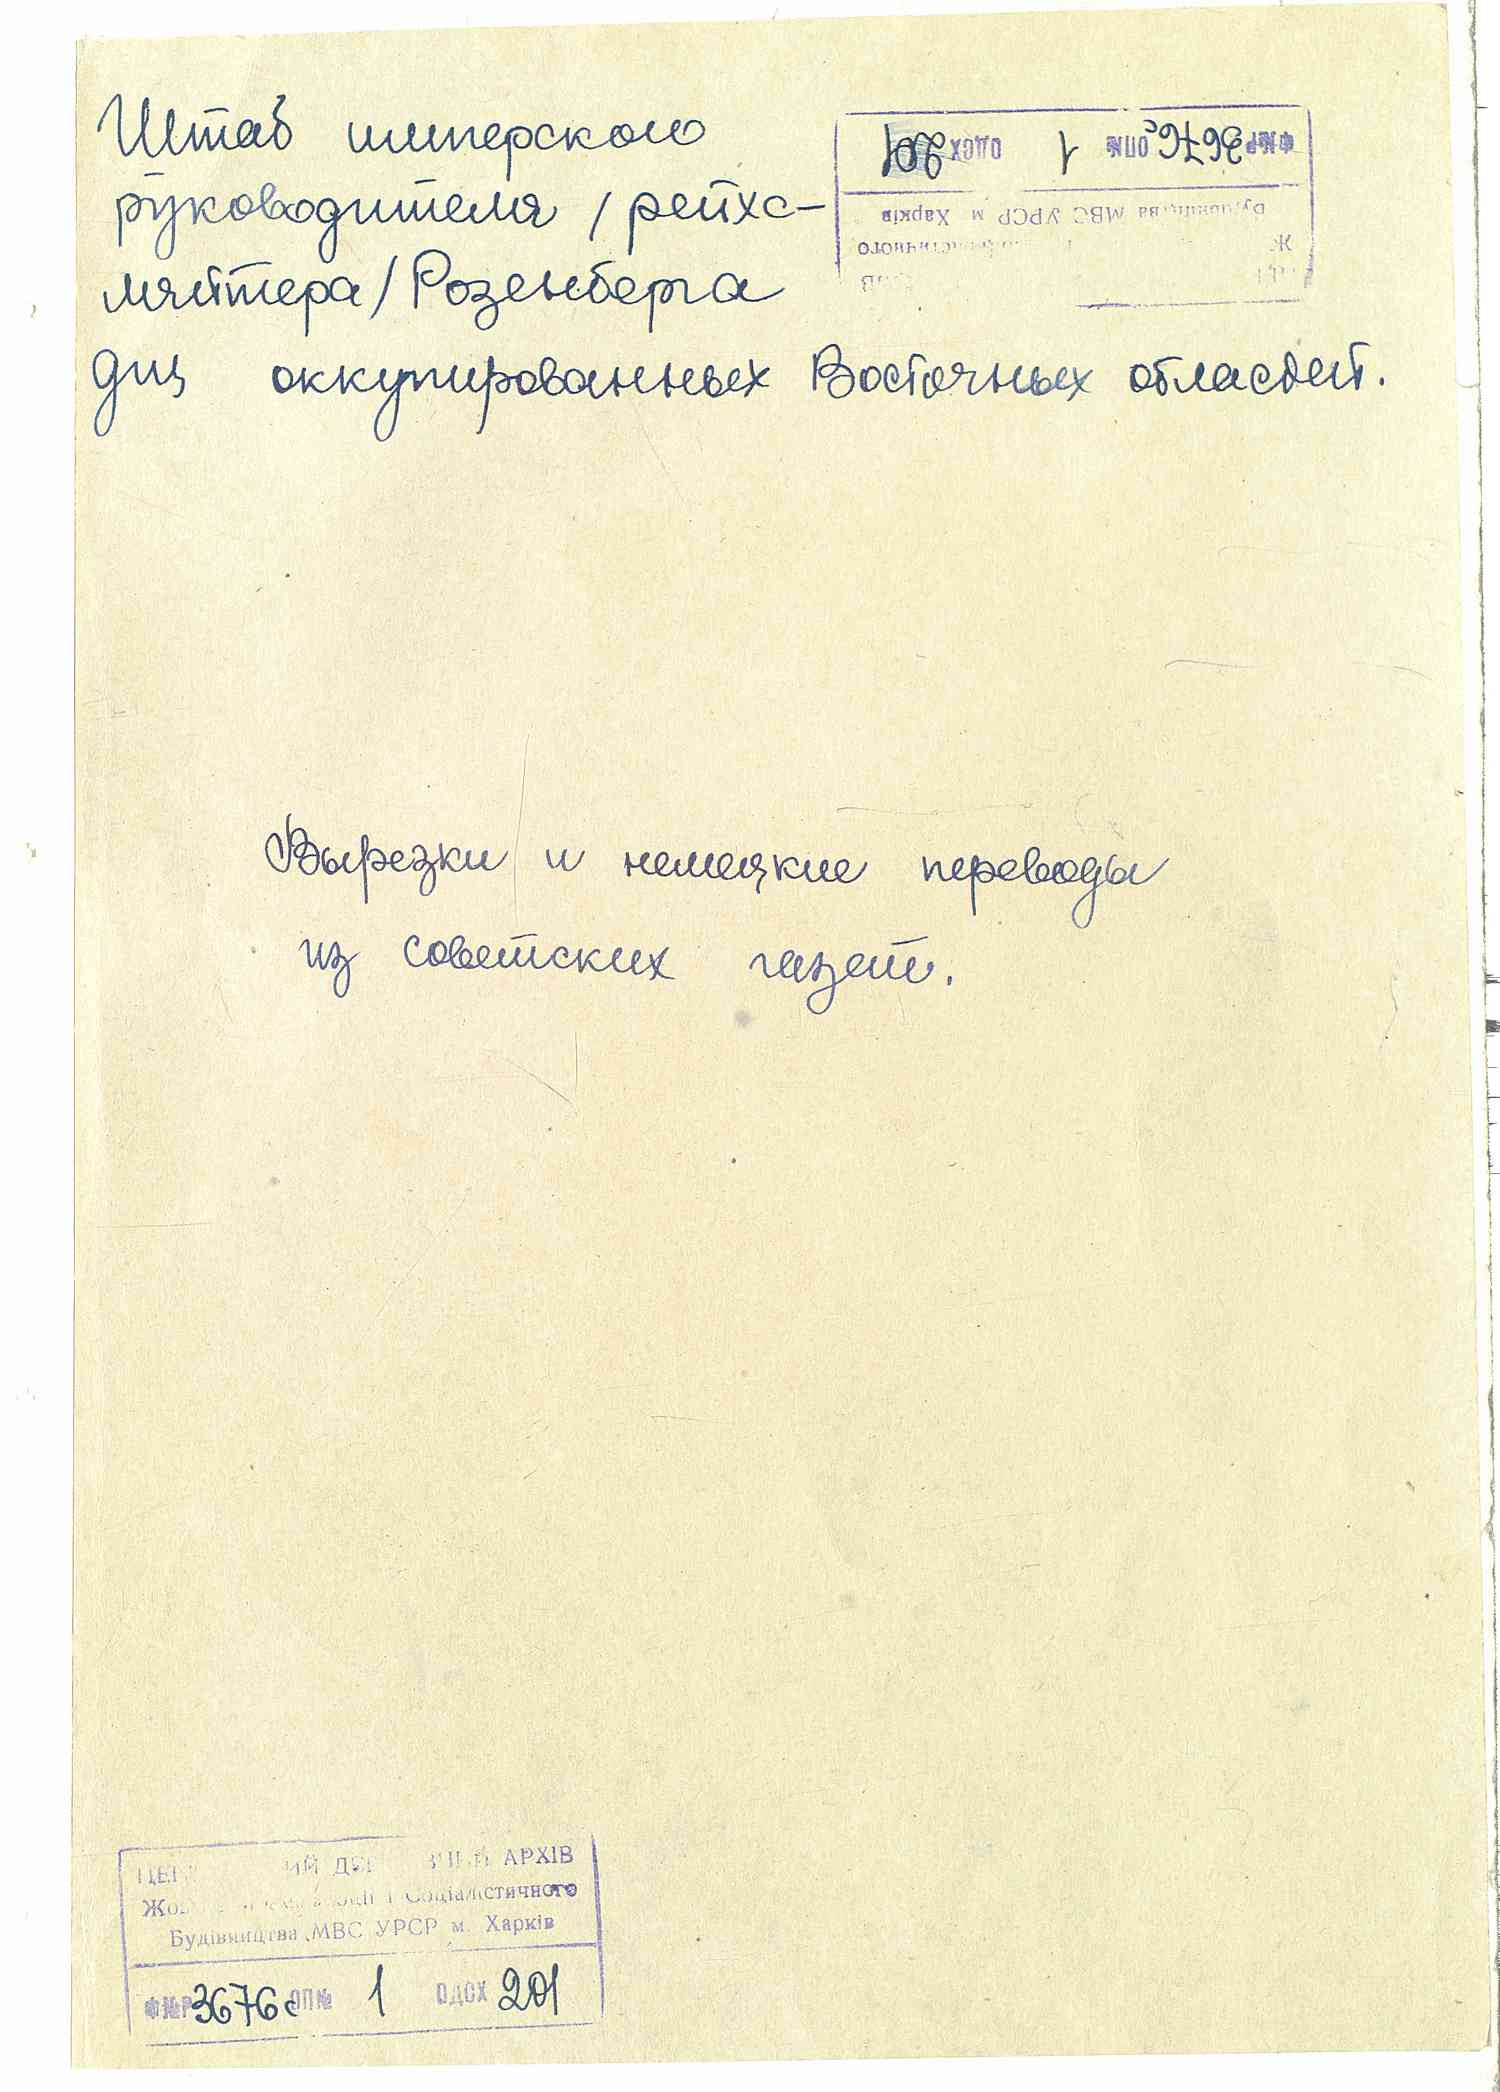 Штаб имперского
руководителя /рейхс-
ляйтера/ Розенберга
для оккупированных Восточных областей.
Ф№Р 3676с ОП№ 1 ОДСХ 201
Будівництва МВС УРСР м Харків
Вырезки и немецкие переводы
из советских газет.
АРХІВ
і Соціалістичного
Будівництва МВС УРСР м. Харків
Ф№Р 3676с ОП№ 1 ОДСХ 201